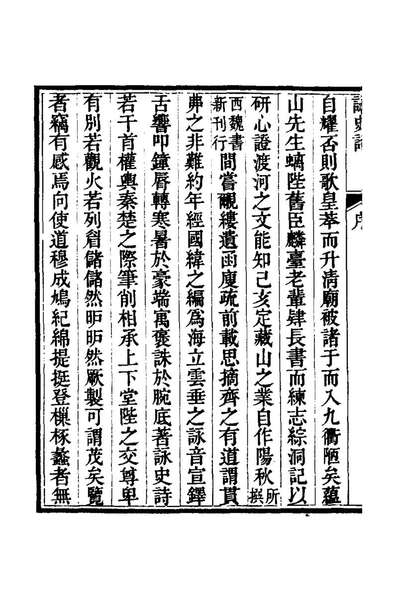 詠史詩 序
自耀否則歌皇荂而升清廟被諸于而入九衢陋矣蘊
山先生螭陛舊臣麟臺老輩肆長書而練志綜洞記以
研心證渡河之文能知己亥定藏山之業自作陽秋所撰
西魏書新刊行間嘗覼縷遺函庋疏前載思摘齊之有道謂貫
弗之非難約年經國緯之編為海立雲垂之詠音宣鐸
舌響叩鐘脣轉寒暑於豪端寓褒誅於腕底著詠史詩
若干首權輿秦楚之際筆削相承上下堂陛之交尊卑
有別若觀火若列眉儲儲然昈昈然厥製可謂茂矣覽
者竊有感焉向使道穆成鳩紀綿提挺登樔椓蠡者無